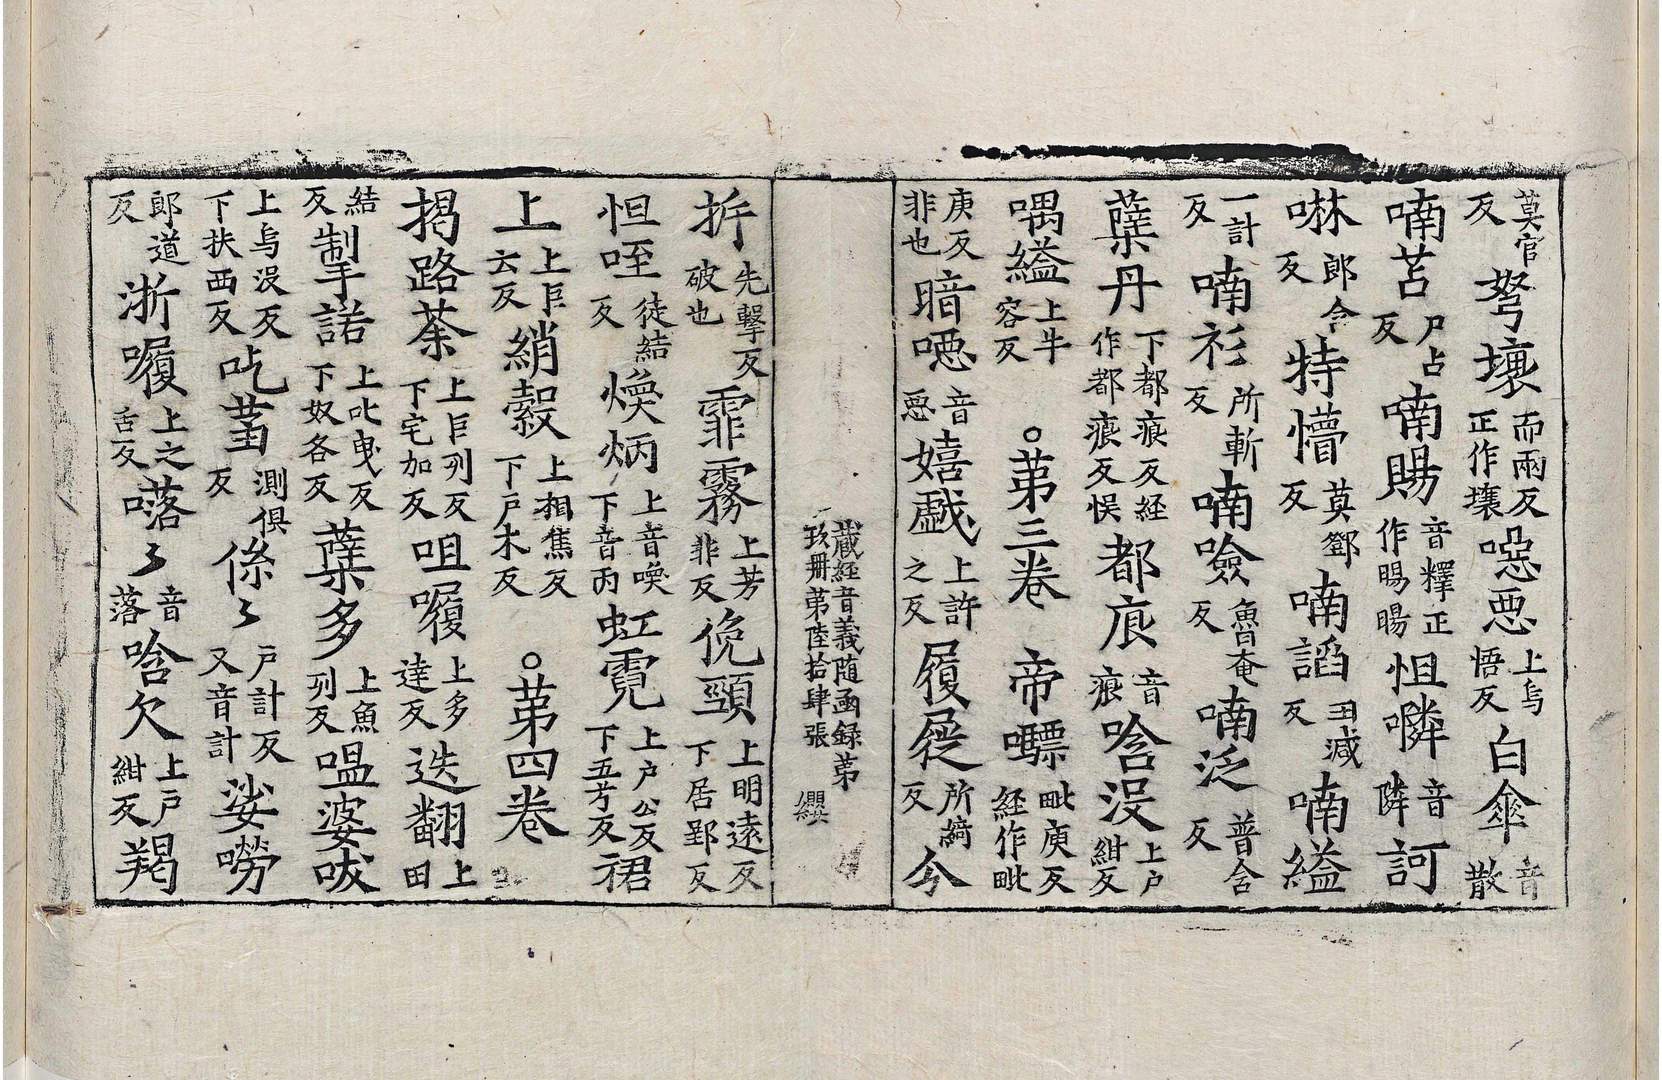 莫官反弩壞而兩反正作壤噁悪上烏悟反白傘音散
喃苫尸占反喃賜音釋正作暘暘怚嶙音隣訶
啉郎令反特懵莫鄧反喃謟丑減反喃縊
一計反喃衫所斬反喃噞魯奄反喃泛普含反
蘖丹下都痕反経作都痕反悮都痕音痕唅没上戶紺反
喁縊上牛容反○苐三卷帝嘌毗庾反経作毗
庚反非也暗噁音悪嬉戲上許之反屐屣所綺反今
蔵経音義随函録苐玖冊苐陸拾肆張 纓
㭊先擊反破也霏霧上芳非反俛頸上明遠反下居郢反
怛咥徒結反煥炳上音喚下音丙虹霓上戶公反下五兮反裙
上上巨云反綃縠上相焦反下戶木反○苐四卷
揭路荼上巨列反下宅加反咀𡃤上多達反迭翻上田
結反掣諾上叱曳反下奴各反蘖多上魚列反嗢婆吠
上烏没反下扶西反吃䓝測俱反係〻戶計反又音計娑嘮
郎道反浙𡃤上之舌反㗉〻音落唅欠上戶紺反羯